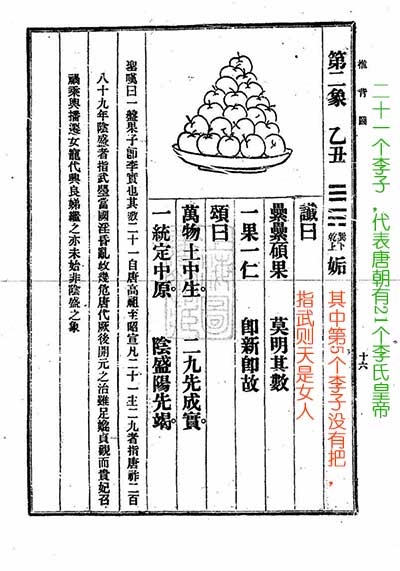 二十一个李子，代表唐朝有21个李氏皇帝
推背圖
十六
第二象 乙丑 巽下乾上 姤
其中第5个李子没有把，
指武则天是女人
讖曰
纍纍碩果 莫明其數
一果一仁 即新即故
頌曰
萬物土中生。 二九先成實。
一統定中原。 陰盛陽先竭。
聖嘆曰一盤果子即李實也其數二十一自唐高祖至昭宣凡二十一主二九者指唐祚二百
八十九年陰盛者指武曌當國淫昏亂政幾危唐代厥後開元之治雖足媲貞觀而貴妃召
禍乘輿播遷女寵代興良娣繼之亦未始非陰盛之象